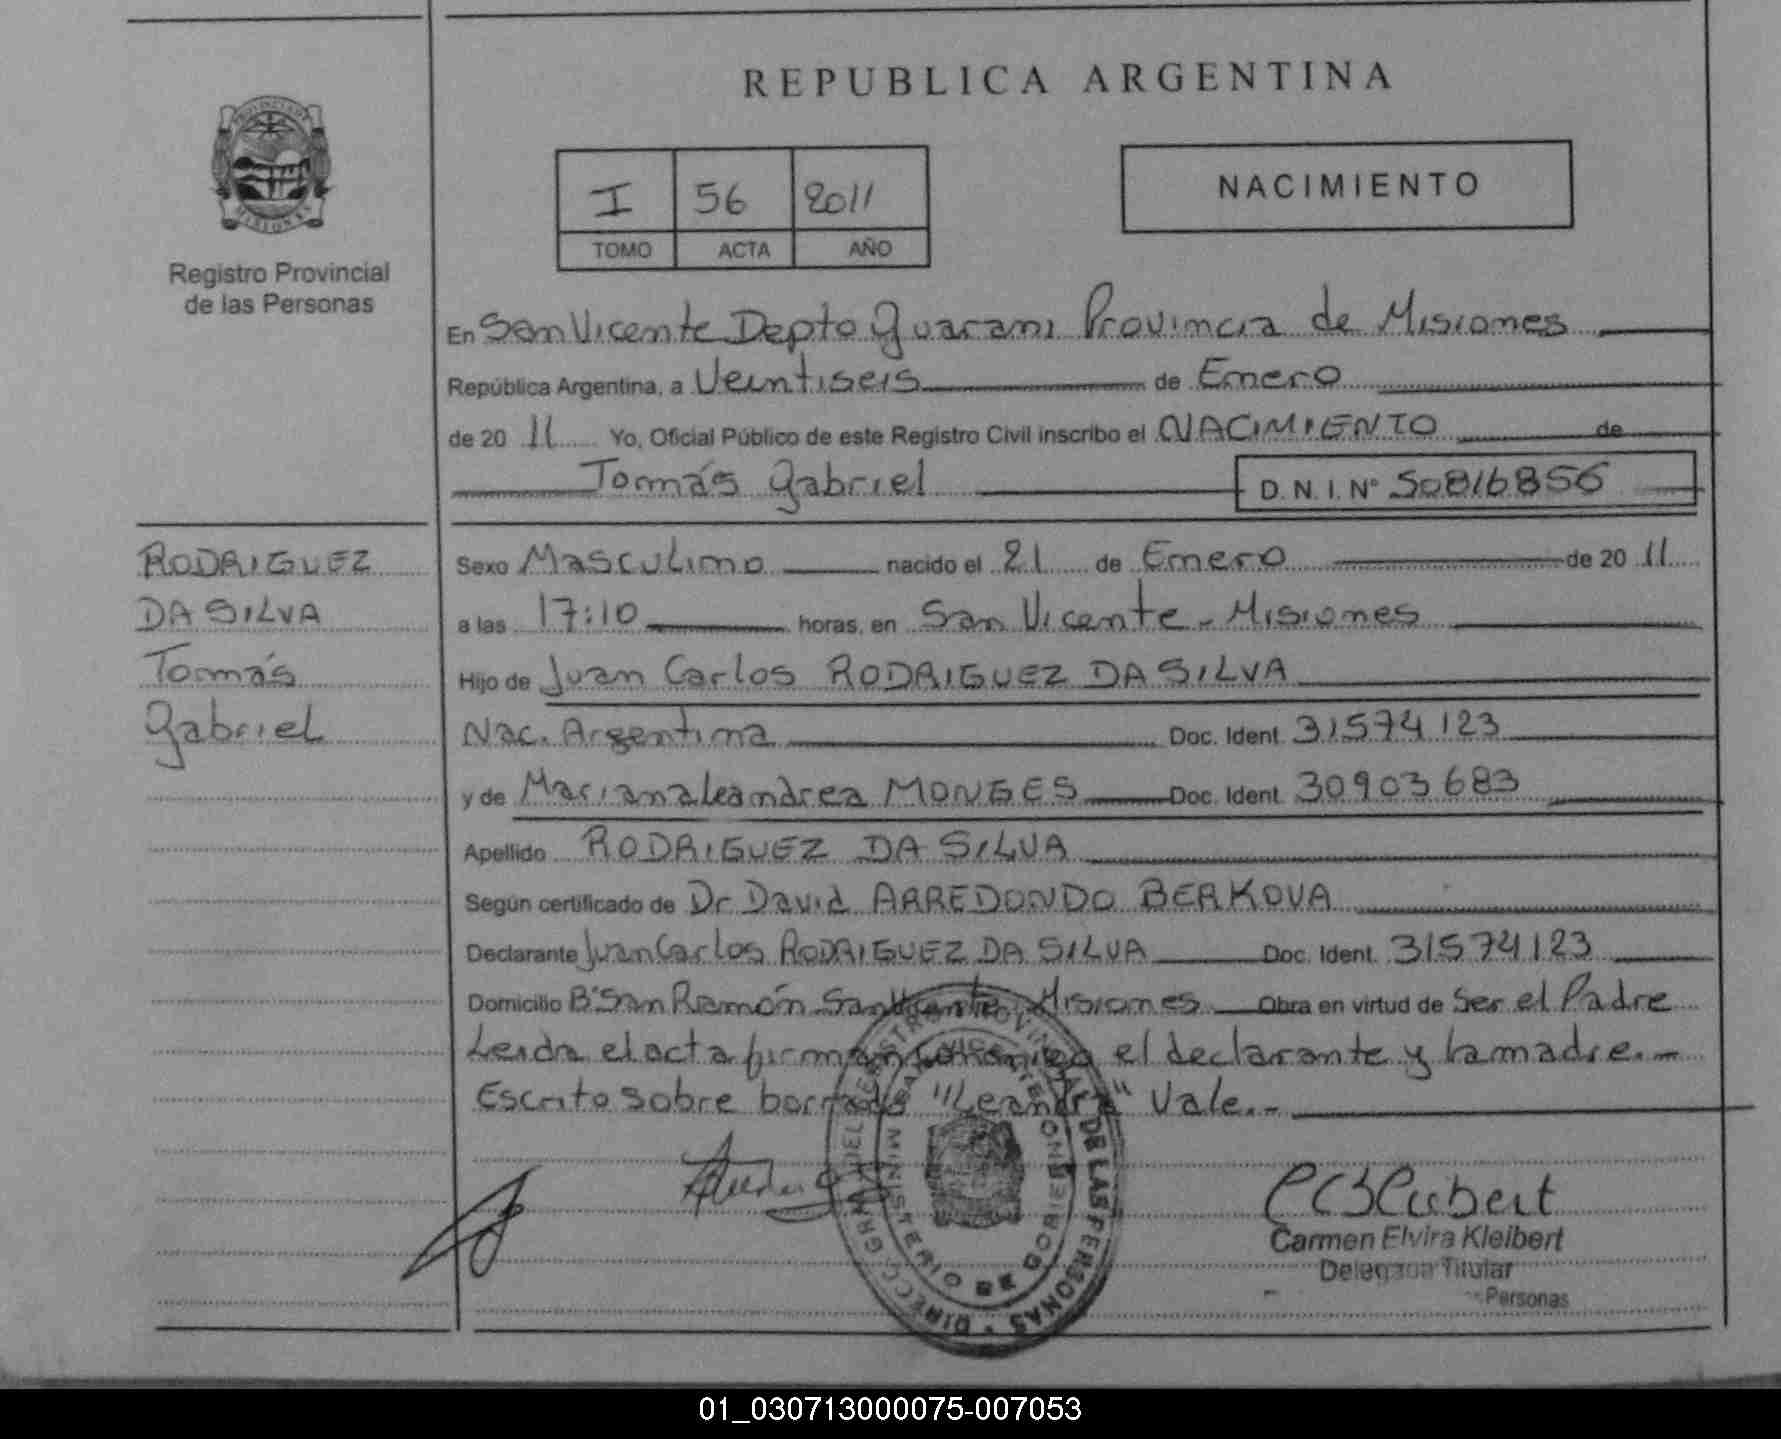 REPUBLICA ARGENTINA
PROVINCIA DE
MISIONES
Registro Provincial
de las Personas
I 56 2011
TOMO ACTA AÑO
NACIMIENTO
En San Vicente Depto Guarani Provincia de Misiones
República Argentina, a Veintiseis de Enero
de 20 11 Yo, Oficial Público de este Registro Civil inscribo el NACIMIENTO de
Tomás Gabriel D.N.I. Nº 50816856
RODRIGUEZ
DA SILVA
Tomás
Gabriel
Sexo Masculino nacido el 21 de Enero de 20 11
a las 17:10 horas, en San Vicente - Misiones
Hijo de Juan Carlos RODRIGUEZ DA SILVA
Nac. Argentina Doc. Ident. 31574123
y de Maria Leandrea MONGES Doc. Ident. 30903683
Apellido RODRIGUEZ DA SILVA
Según certificado de Dr David ARREDONDO BERKOVA
Declarante Juan Carlos RODRIGUEZ DA SILVA Doc. Ident. 31574123
Domicilio Bº San Ramón San Vicente Misiones Obra en virtud de Ser el Padre
Leida el acta firman conmigo el declarante y la madre.-
Escrito sobre borrado "Leandra" Vale.-
Carmen Elvira Kleibert
Delegada Titular
Personas
01_030713000075-007053